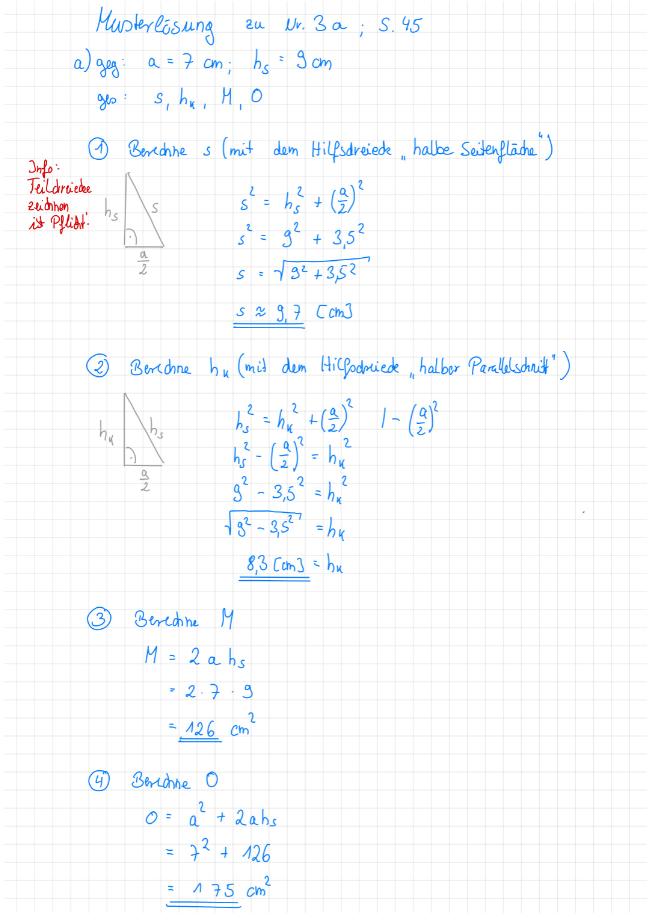 Musterlösung zu Nr. 3a ; S. 45
a) geg: a = 7 cm; h_s = 9 cm
ges: s, h_k, M, O
① Berechne s (mit dem Hilfsdreieck „halbe Seitenfläche")
Info:
Teildreiecke
zeichnen
ist Pflicht!
h_s s
a/2
s² = h_s² + (a/2)²
s² = 9² + 3,5²
s = √(9² + 3,5²)
s ≈ 9,7 [cm]
② Berechne h_k (mit dem Hilfsdreieck „halber Parallelschnitt")
h_k h_s
a/2
h_s² = h_k² + (a/2)² | - (a/2)²
h_s² - (a/2)² = h_k²
9² - 3,5² = h_k²
√(9² - 3,5²) = h_k
8,3 [cm] = h_k
③ Berechne M
M = 2 a h_s
= 2 · 7 · 9
= 126 cm²
④ Berechne O
O = a² + 2ah_s
= 7² + 126
= 175 cm²